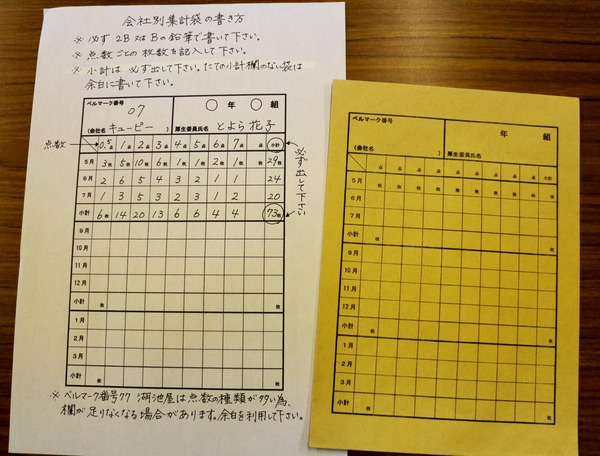 会社別集計袋の書き方
※ 必ず 2B 又は Bの鉛筆で書いて下さい。
※ 点数ごとの枚数を記入して下さい。
※ 小計は 必ず出して下さい。たての小計欄のない袋は
余白に書いて下さい。
ベルマーク番号
07
○ 年 ○ 組
(会社名 キューピー )
厚生委員氏名 とよら 花子
点数 0.5点 1点 2点 3点 4点 5点 6点 7点 点 小計
5月 3枚 5枚 10枚 6枚 1枚 1枚 2枚 1枚 枚 29枚
6月 2 6 5 4 3 2 1 1 24
7月 1 3 5 3 2 3 1 2 20
小計 6枚 14 20 13 6 6 4 4 73枚
必ず出して下さい
9月
10月
11月
12月
小計 枚 枚
1月
2月
3月
小計 枚 枚
※ ベルマーク番号77 湖池屋は点数の種類が多い為、
欄が足りなくなる場合があります。余白を利用して下さい。
ベルマーク番号
年 組
(会社名 )
厚生委員氏名
点 点 点 点 点 点 点 点 点 小計
5月 枚 枚 枚 枚 枚 枚 枚 枚 枚 枚
6月
7月
小計 枚 枚
9月
10月
11月
12月
小計 枚 枚
1月
2月
3月
小計 枚 枚